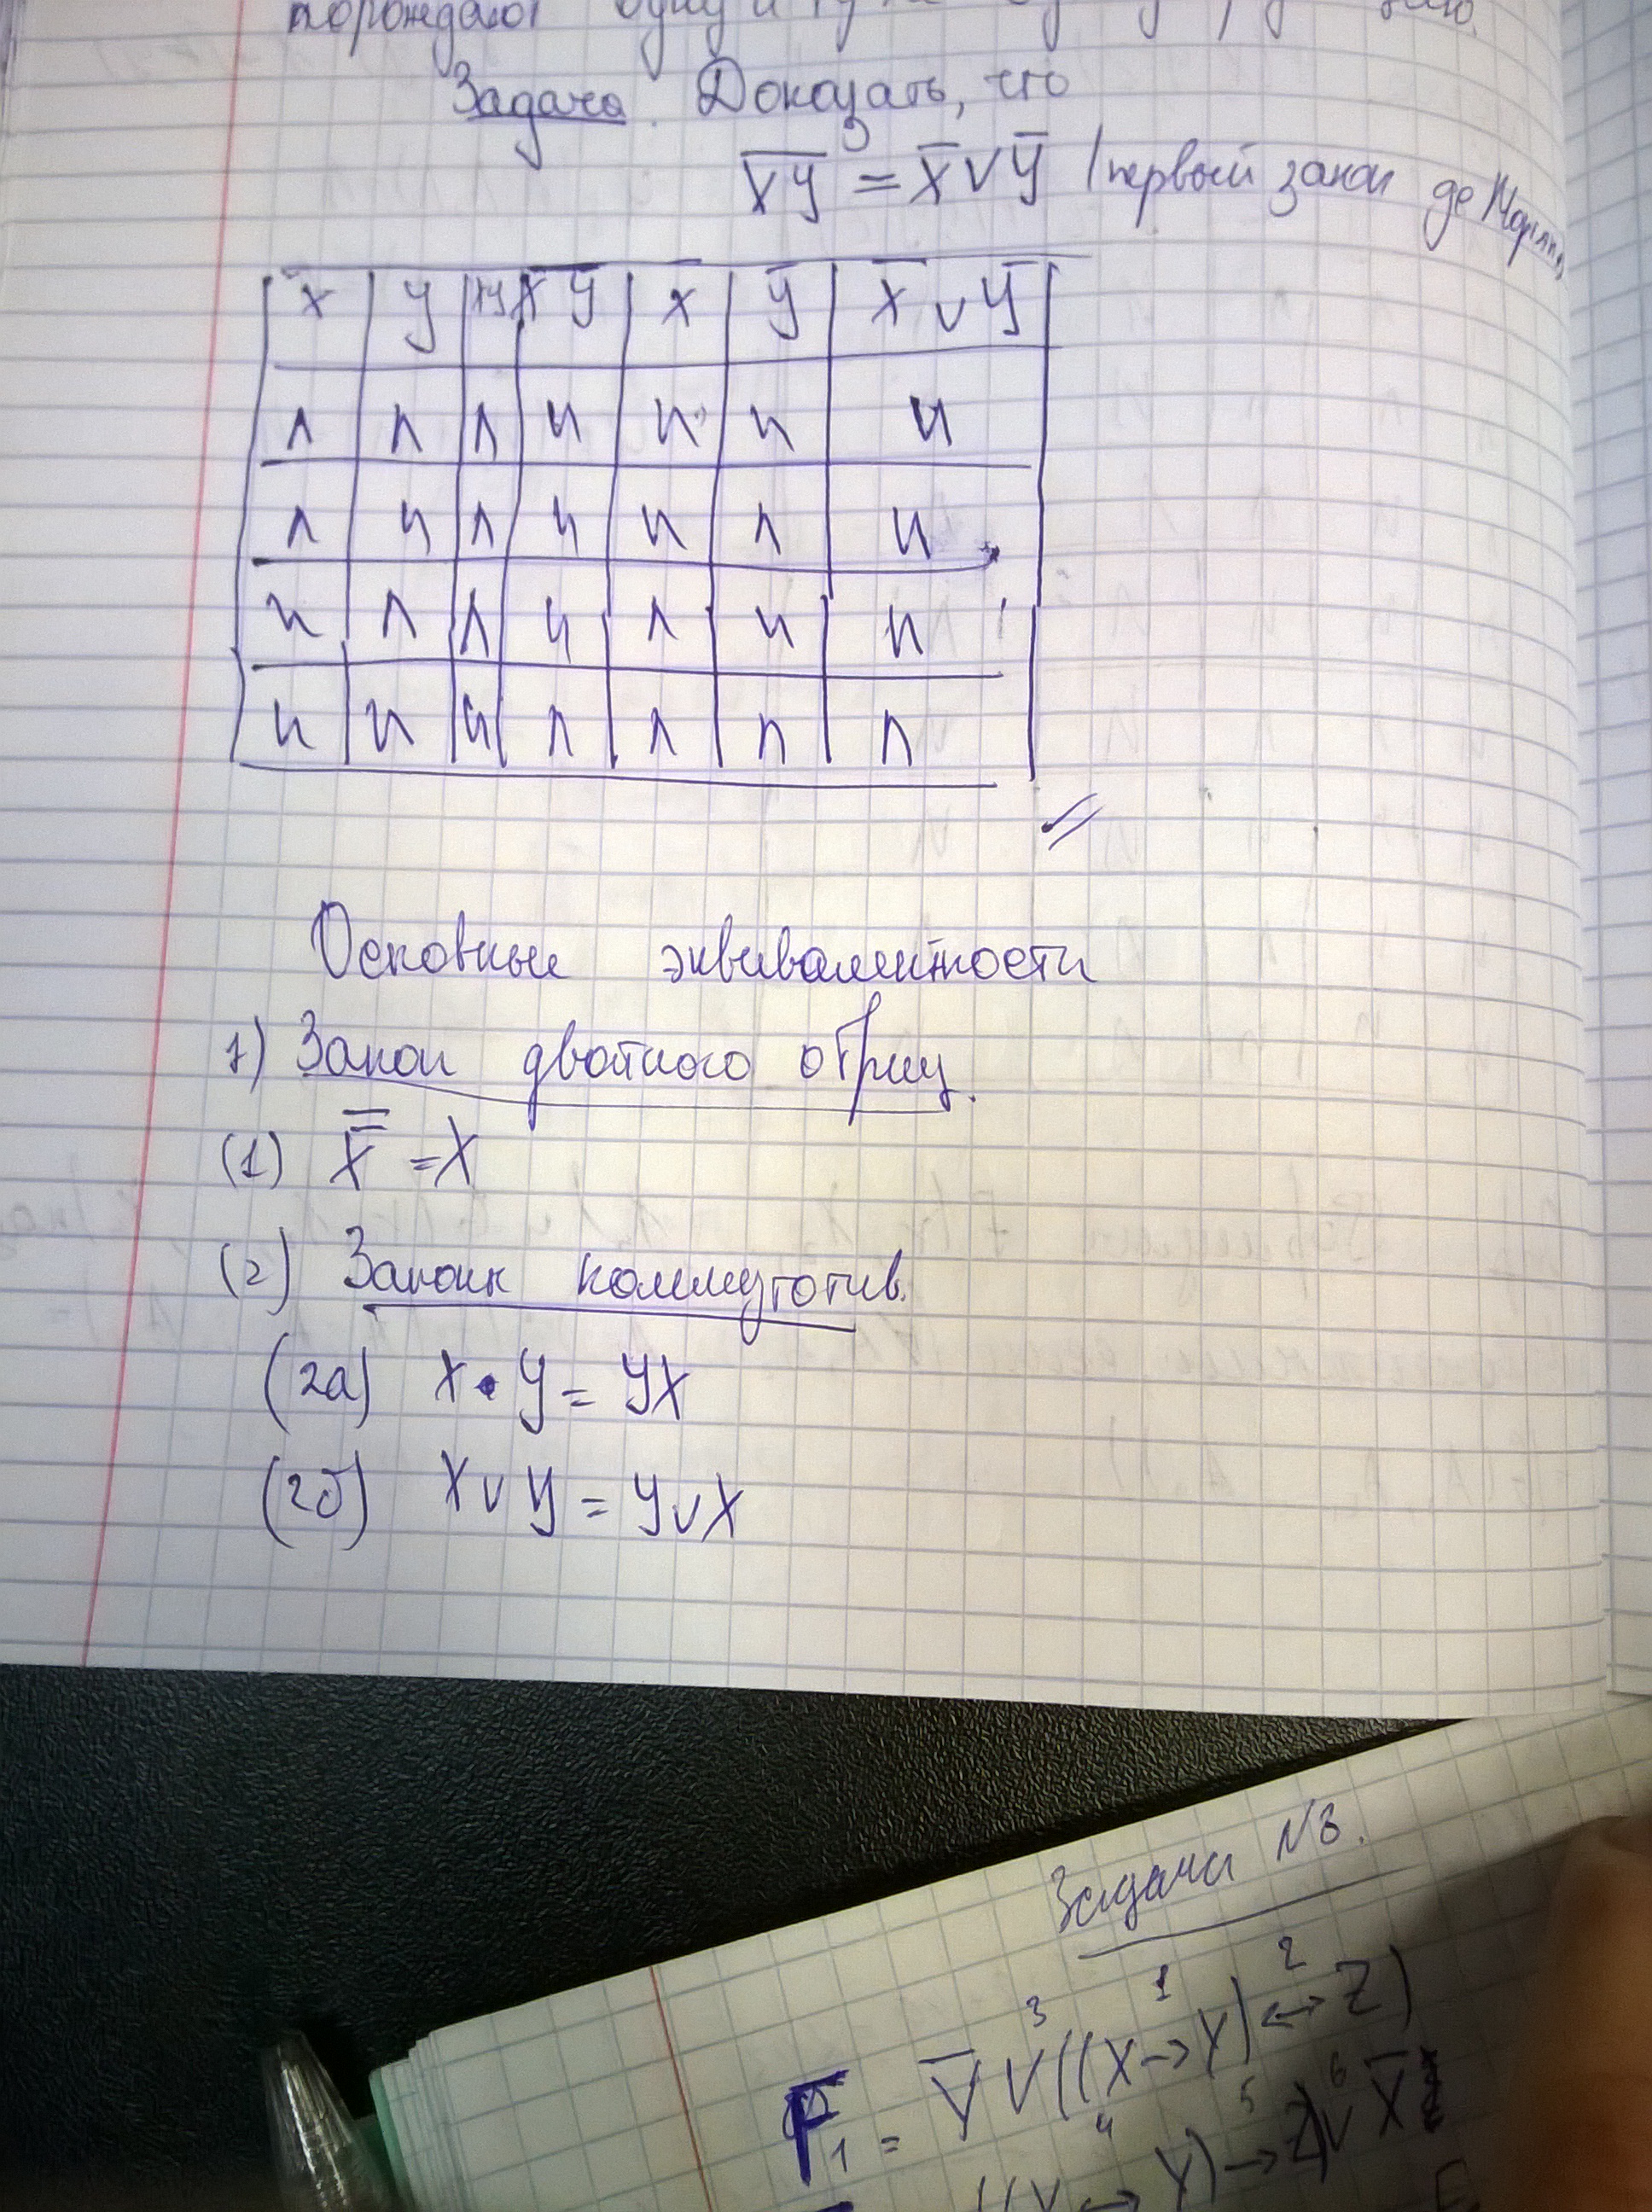 порождают одну и ту же
Задача. Доказать, что
X̅Y̅ = X̅ ∨ Y̅ (первый закон де Моргана)
X | Y | XY | X̅Y̅ | X̅ | Y̅ | X̅ ∨ Y̅
Л | Л | Л | И | И | И | И
Л | И | Л | И | И | Л | И
И | Л | Л | И | Л | И | И
И | И | И | Л | Л | Л | Л
Основные эквивалентности
1) Закон двойного отриц.
(1) X̿ = X
(2) Законы коммутатив.
(2а) X • Y = YX
(2б) X ∨ Y = Y ∨ X
Задача №3.
3 1 2
F₁ = Y̅ ∨ ((X → Y) ↔ Z)
4 5 6
Y) → Z) ∨ X̅